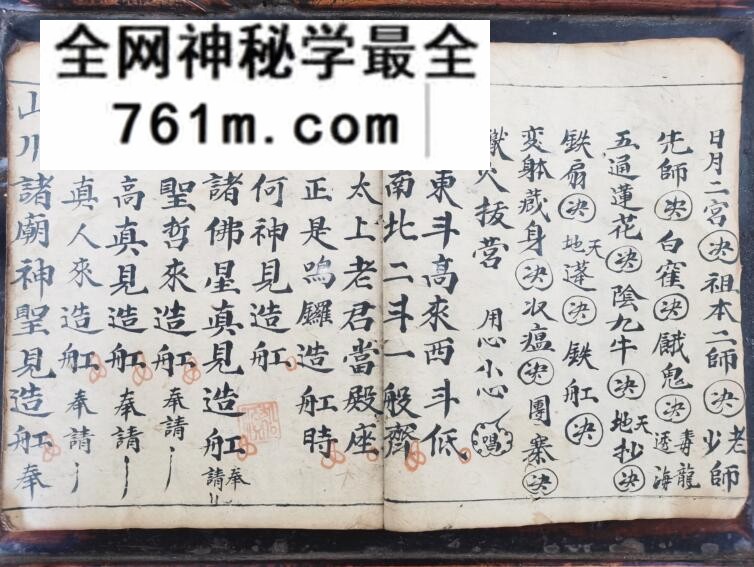 全网神秘学最全
761m.com
日月二宫决祖本二師决老師少師
先師决白窑决餓鬼决毒龍透海
五通蓮花决陰九牛决天地抄决
鉄扇决天地蓬决鉄舡决
変躰蔵身决収瘟决團寨决
火拔营 用心小心
東斗高來西斗低
南北二斗一般齊
太上老君當殿座
正是鳴鑼造舡時
何神見造舡
諸佛星真見造舡奉請
聖哲來造舡奉請
高真見造舡奉請
真人來造舡奉請
山川諸廟神聖見造舡奉